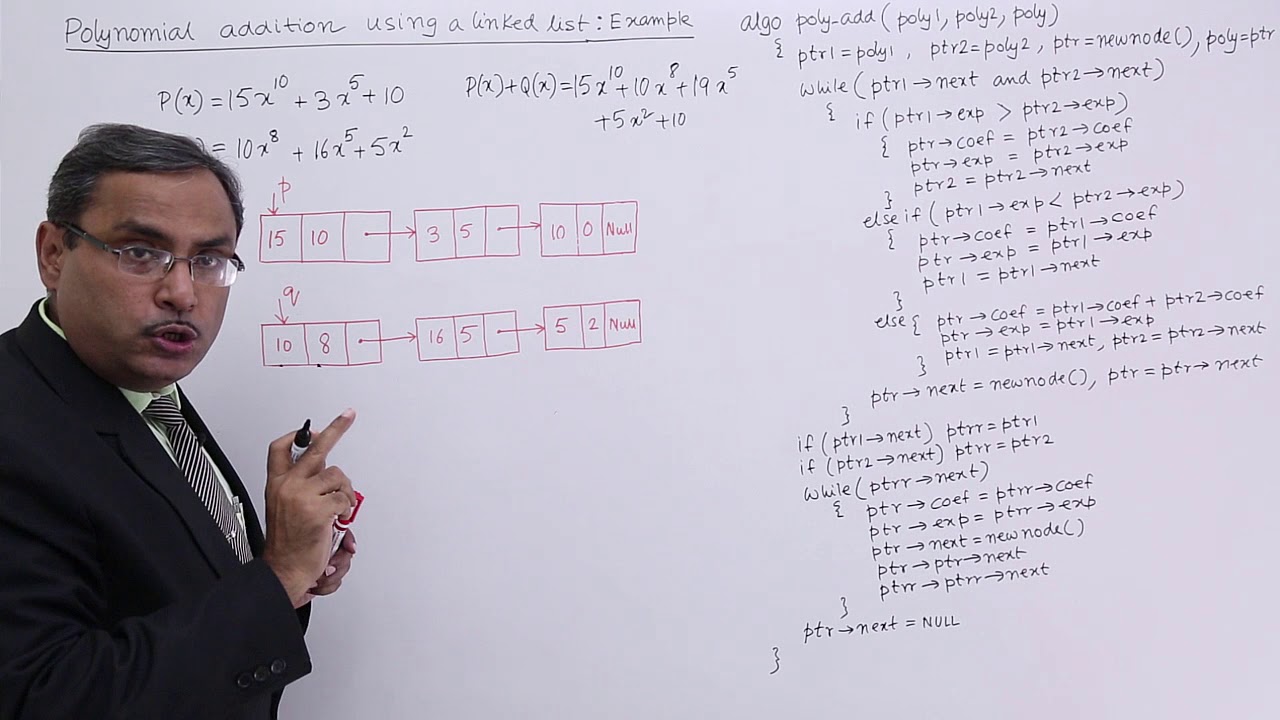 Polynomial addition using a linked list : Example
P(x) = 15x¹⁰ + 3x⁵ + 10
= 10x⁸ + 16x⁵ + 5x²
P(x) + Q(x) = 15x¹⁰ + 10x⁸ + 19x⁵
+ 5x² + 10
p
15 10 3 5 10 0 Null
q
10 8 16 5 5 2 Null
algo poly-add ( poly1, poly2, poly)
{ ptr1 = poly1 , ptr2 = poly2 , ptr = newnode(), poly = ptr
while ( ptr1 → next and ptr2 → next)
{ if ( ptr1 → exp > ptr2 → exp)
{ ptr → coef = ptr2 → coef
ptr → exp = ptr2 → exp
ptr2 = ptr2 → next
}
else if ( ptr1 → exp < ptr2 → exp)
{ ptr → coef = ptr1 → coef
ptr → exp = ptr1 → exp
ptr1 = ptr1 → next
}
else { ptr → coef = ptr1 → coef + ptr2 → coef
ptr → exp = ptr1 → exp
ptr1 = ptr1 → next, ptr2 = ptr2 → next
}
ptr → next = newnode(), ptr = ptr → next
}
if ( ptr1 → next) ptrr = ptr1
if ( ptr2 → next) ptrr = ptr2
while ( ptrr → next)
{ ptr → coef = ptrr → coef
ptr → exp = ptrr → exp
ptr → next = newnode()
ptr → ptr → next
ptrr → ptrr → next
}
ptr → next = NULL
}